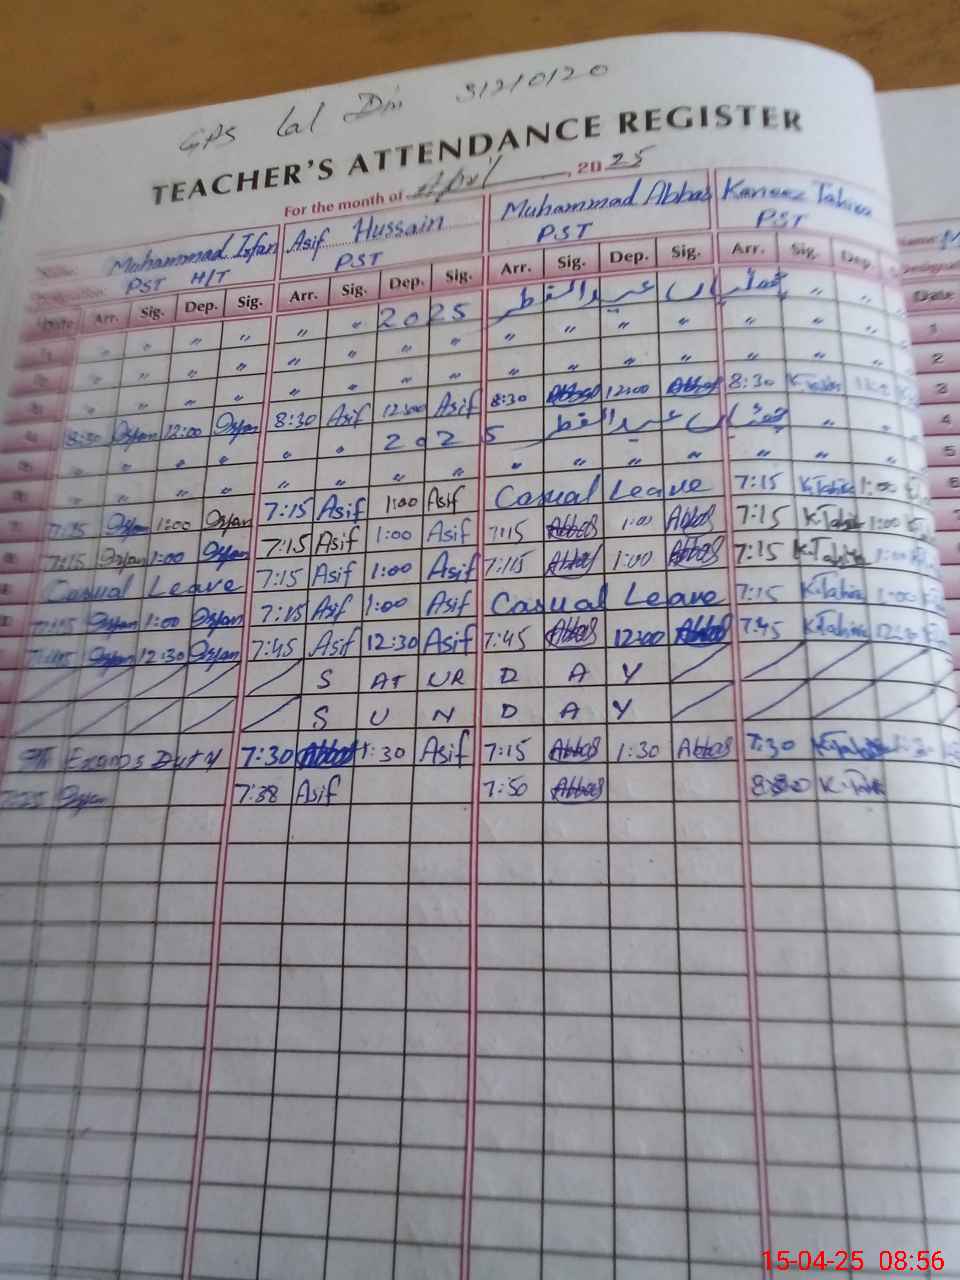 GPS Lal Din 31210120
TEACHER'S ATTENDANCE REGISTER
For the month of April, 2025
Name Muhammad Irfan Asif Hussain Muhammad Abbas Kaneez Tahira
PST H/T PST PST PST
Date Arr. Sig. Dep. Sig. Arr. Sig. Dep. Sig. Arr. Sig. Dep. Sig. Arr. Sig. Dep. Date
1 " " " " " " 2025 عید الفطر " " 1
" " " " " " " " " " " " " " 2
" " " " " " " " " " " " " " 3
8:30 Irfan 12:00 Irfan 8:30 Asif 12:00 Asif 8:30 Abbas 12:00 Abbas 8:30 K.Tahira 4
" " " " " " 2025 عید الفطر " 5
" " " " " " " " " " " " " " 6
Irfan 1:00 Irfan 7:15 Asif 1:00 Asif Casual Leave 7:15 K.Tahira 1:00
7:15 Irfan 1:00 Irfan 7:15 Asif 1:00 Asif 7:15 Abbas 1:00 Abbas 7:15 K.Tahira 1:00
Casual Leave 7:15 Asif 1:00 Asif 7:15 Abbas 1:00 Abbas 7:15 K.Tahira 1:00
7:15 Irfan 1:00 Irfan 7:15 Asif 1:00 Asif Casual Leave 7:15 K.Tahira 1:00
Irfan 12:30 Irfan 7:45 Asif 12:30 Asif 7:45 Abbas 12:00 Abbas 7:45 K.Tahira 12:30
S AT UR D A Y
S U N D A Y
Exams Duty 7:30 Abbas 1:30 Asif 7:15 Abbas 1:30 Abbas 7:30 K.Tahira
Irfan 7:38 Asif 7:50 Abbas K.Tahira
15-04-25 08:56